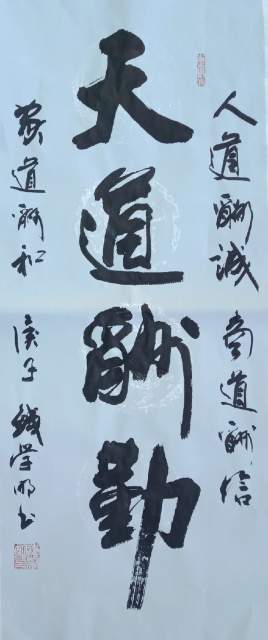 人道酬誠 商道酬信
天道酬勤
家道酬和 庚子 學明书